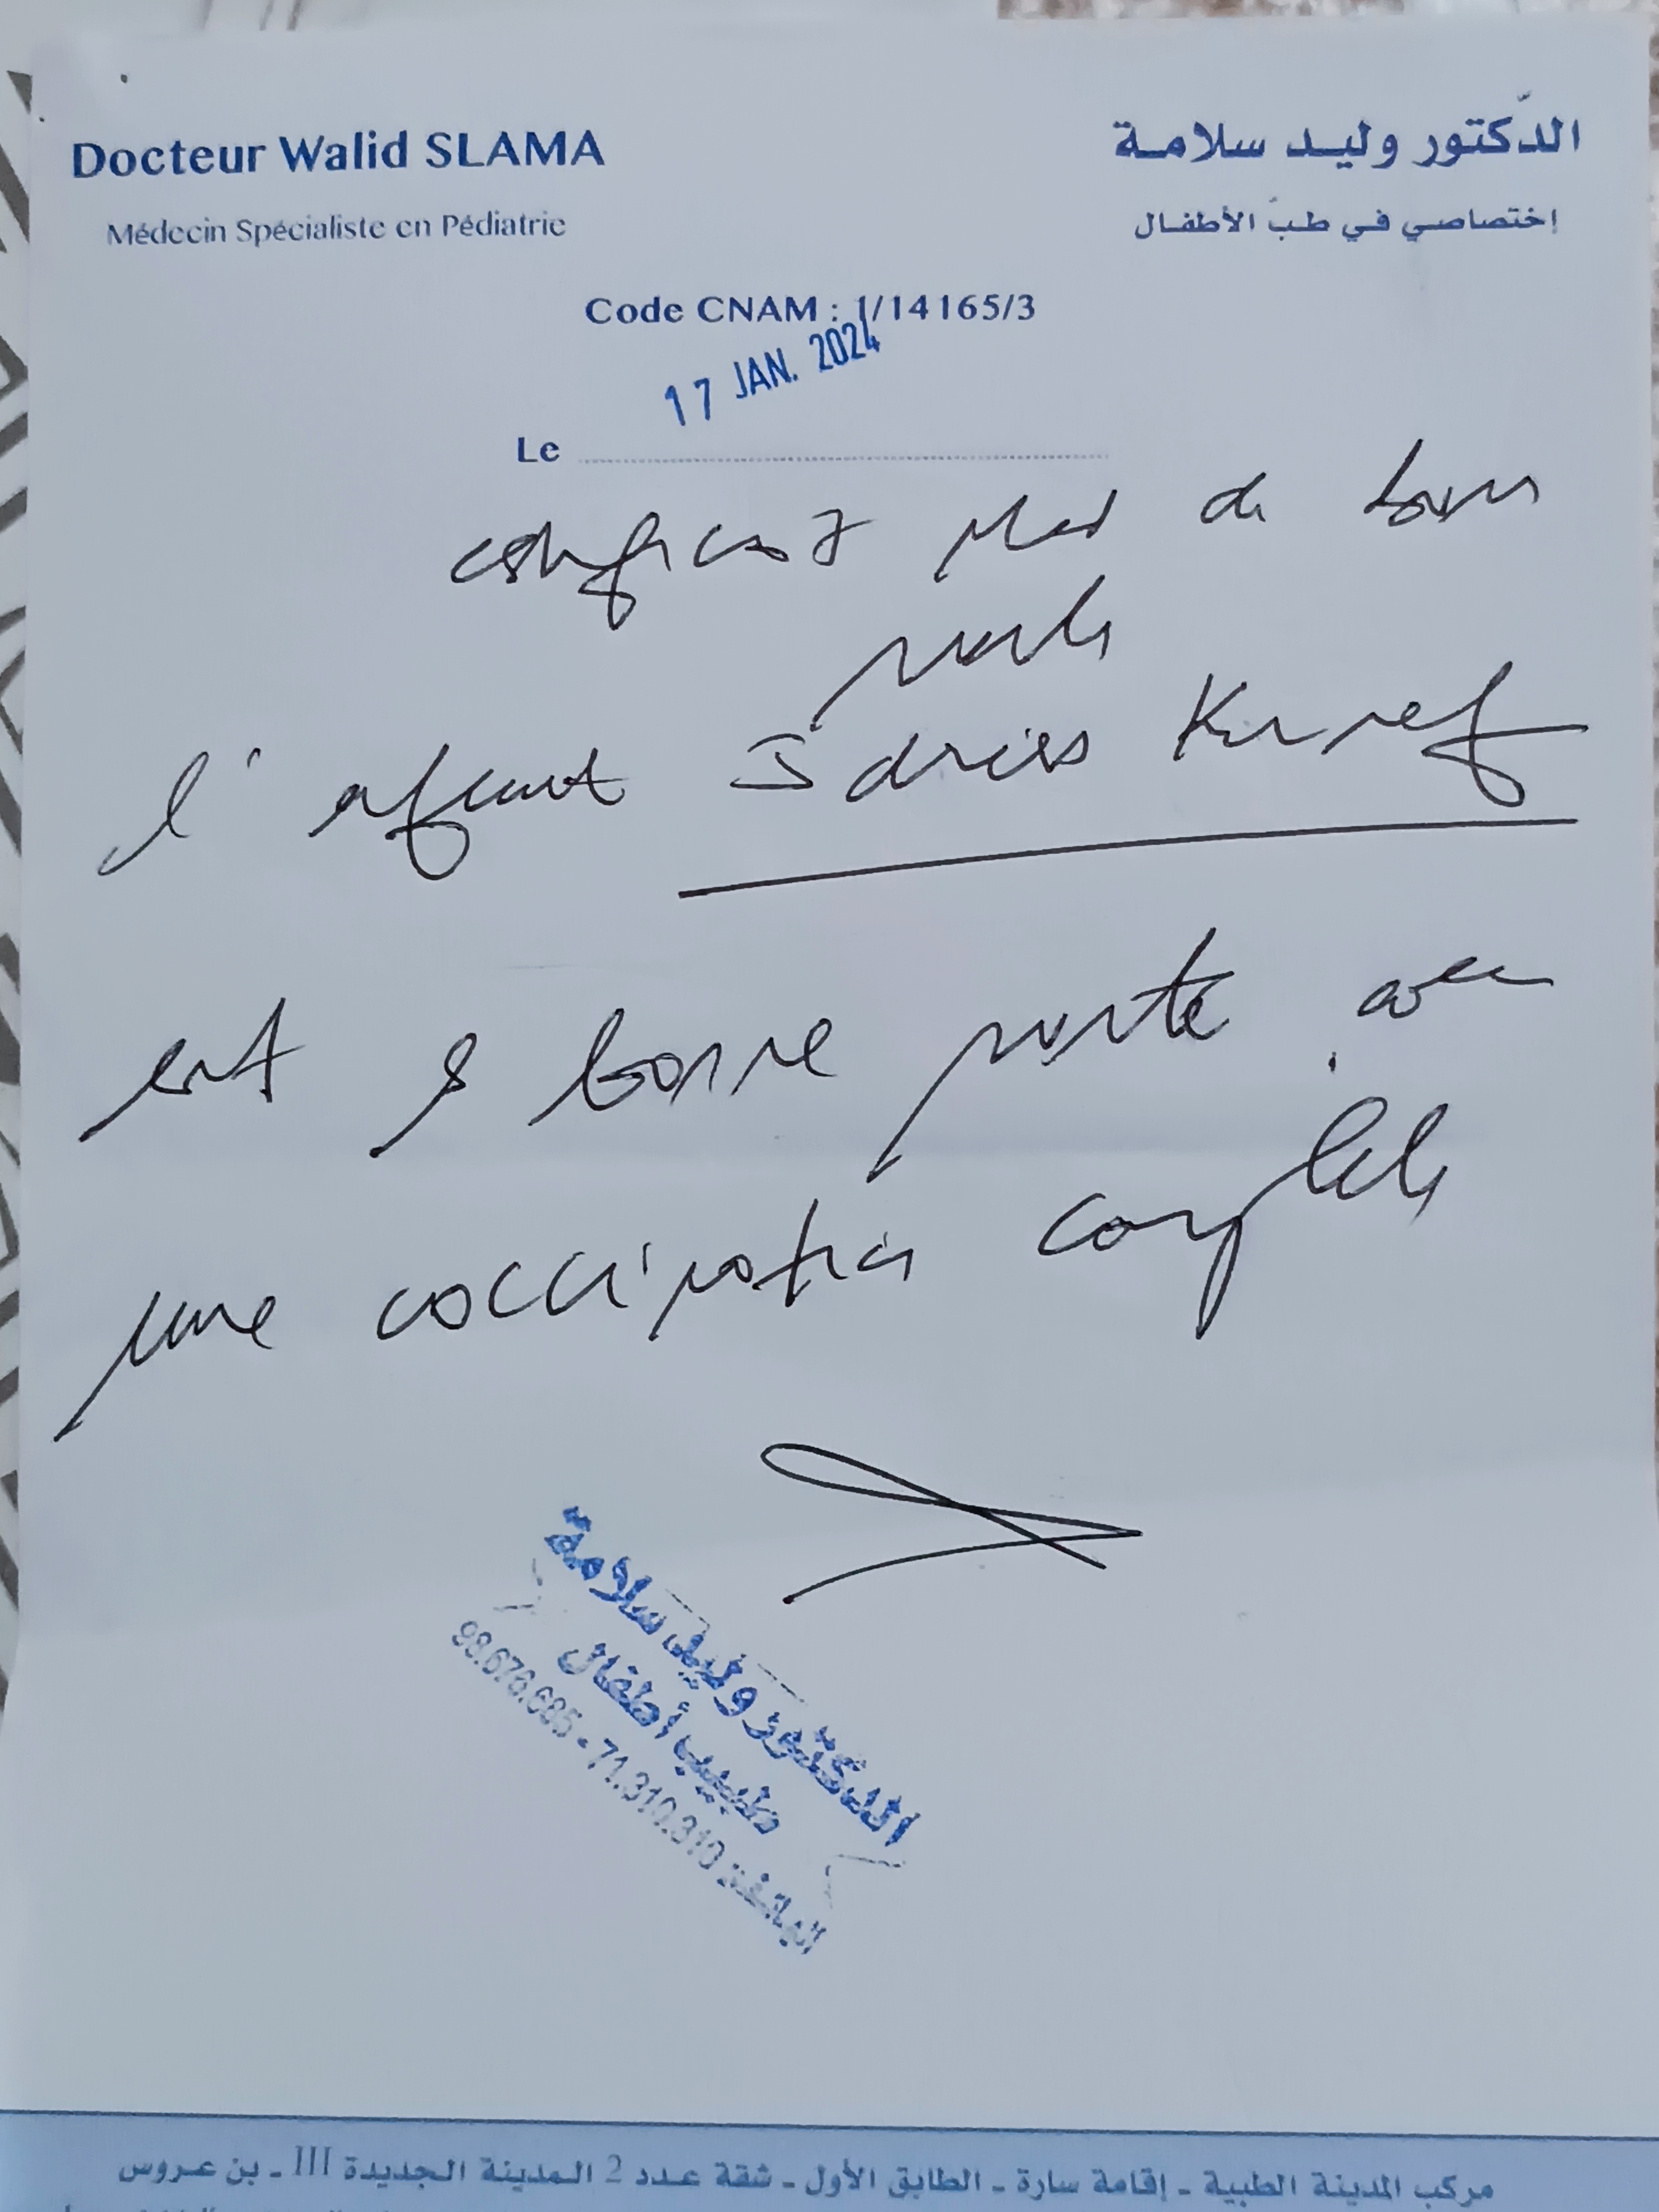 Docteur Walid SLAMA
الدّكتور وليد سلامة
Médecin Spécialiste en Pédiatrie
إختصاصي في طبّ الأطفال
Code CNAM : 1/14165/3
17 JAN. 2024
Le
certificat med de bonne
sante
l'enfant Idriss
est en bonne sante avec
une vaccination complete
الدكتور وليد سلامة
طبيب أطفال
الهاتف: 71.310.310 - 98.676.685
مركب المدينة الطبية - إقامة سارة - الطابق الأول - شقة عدد 2 المدينة الجديدة III - بن عروس